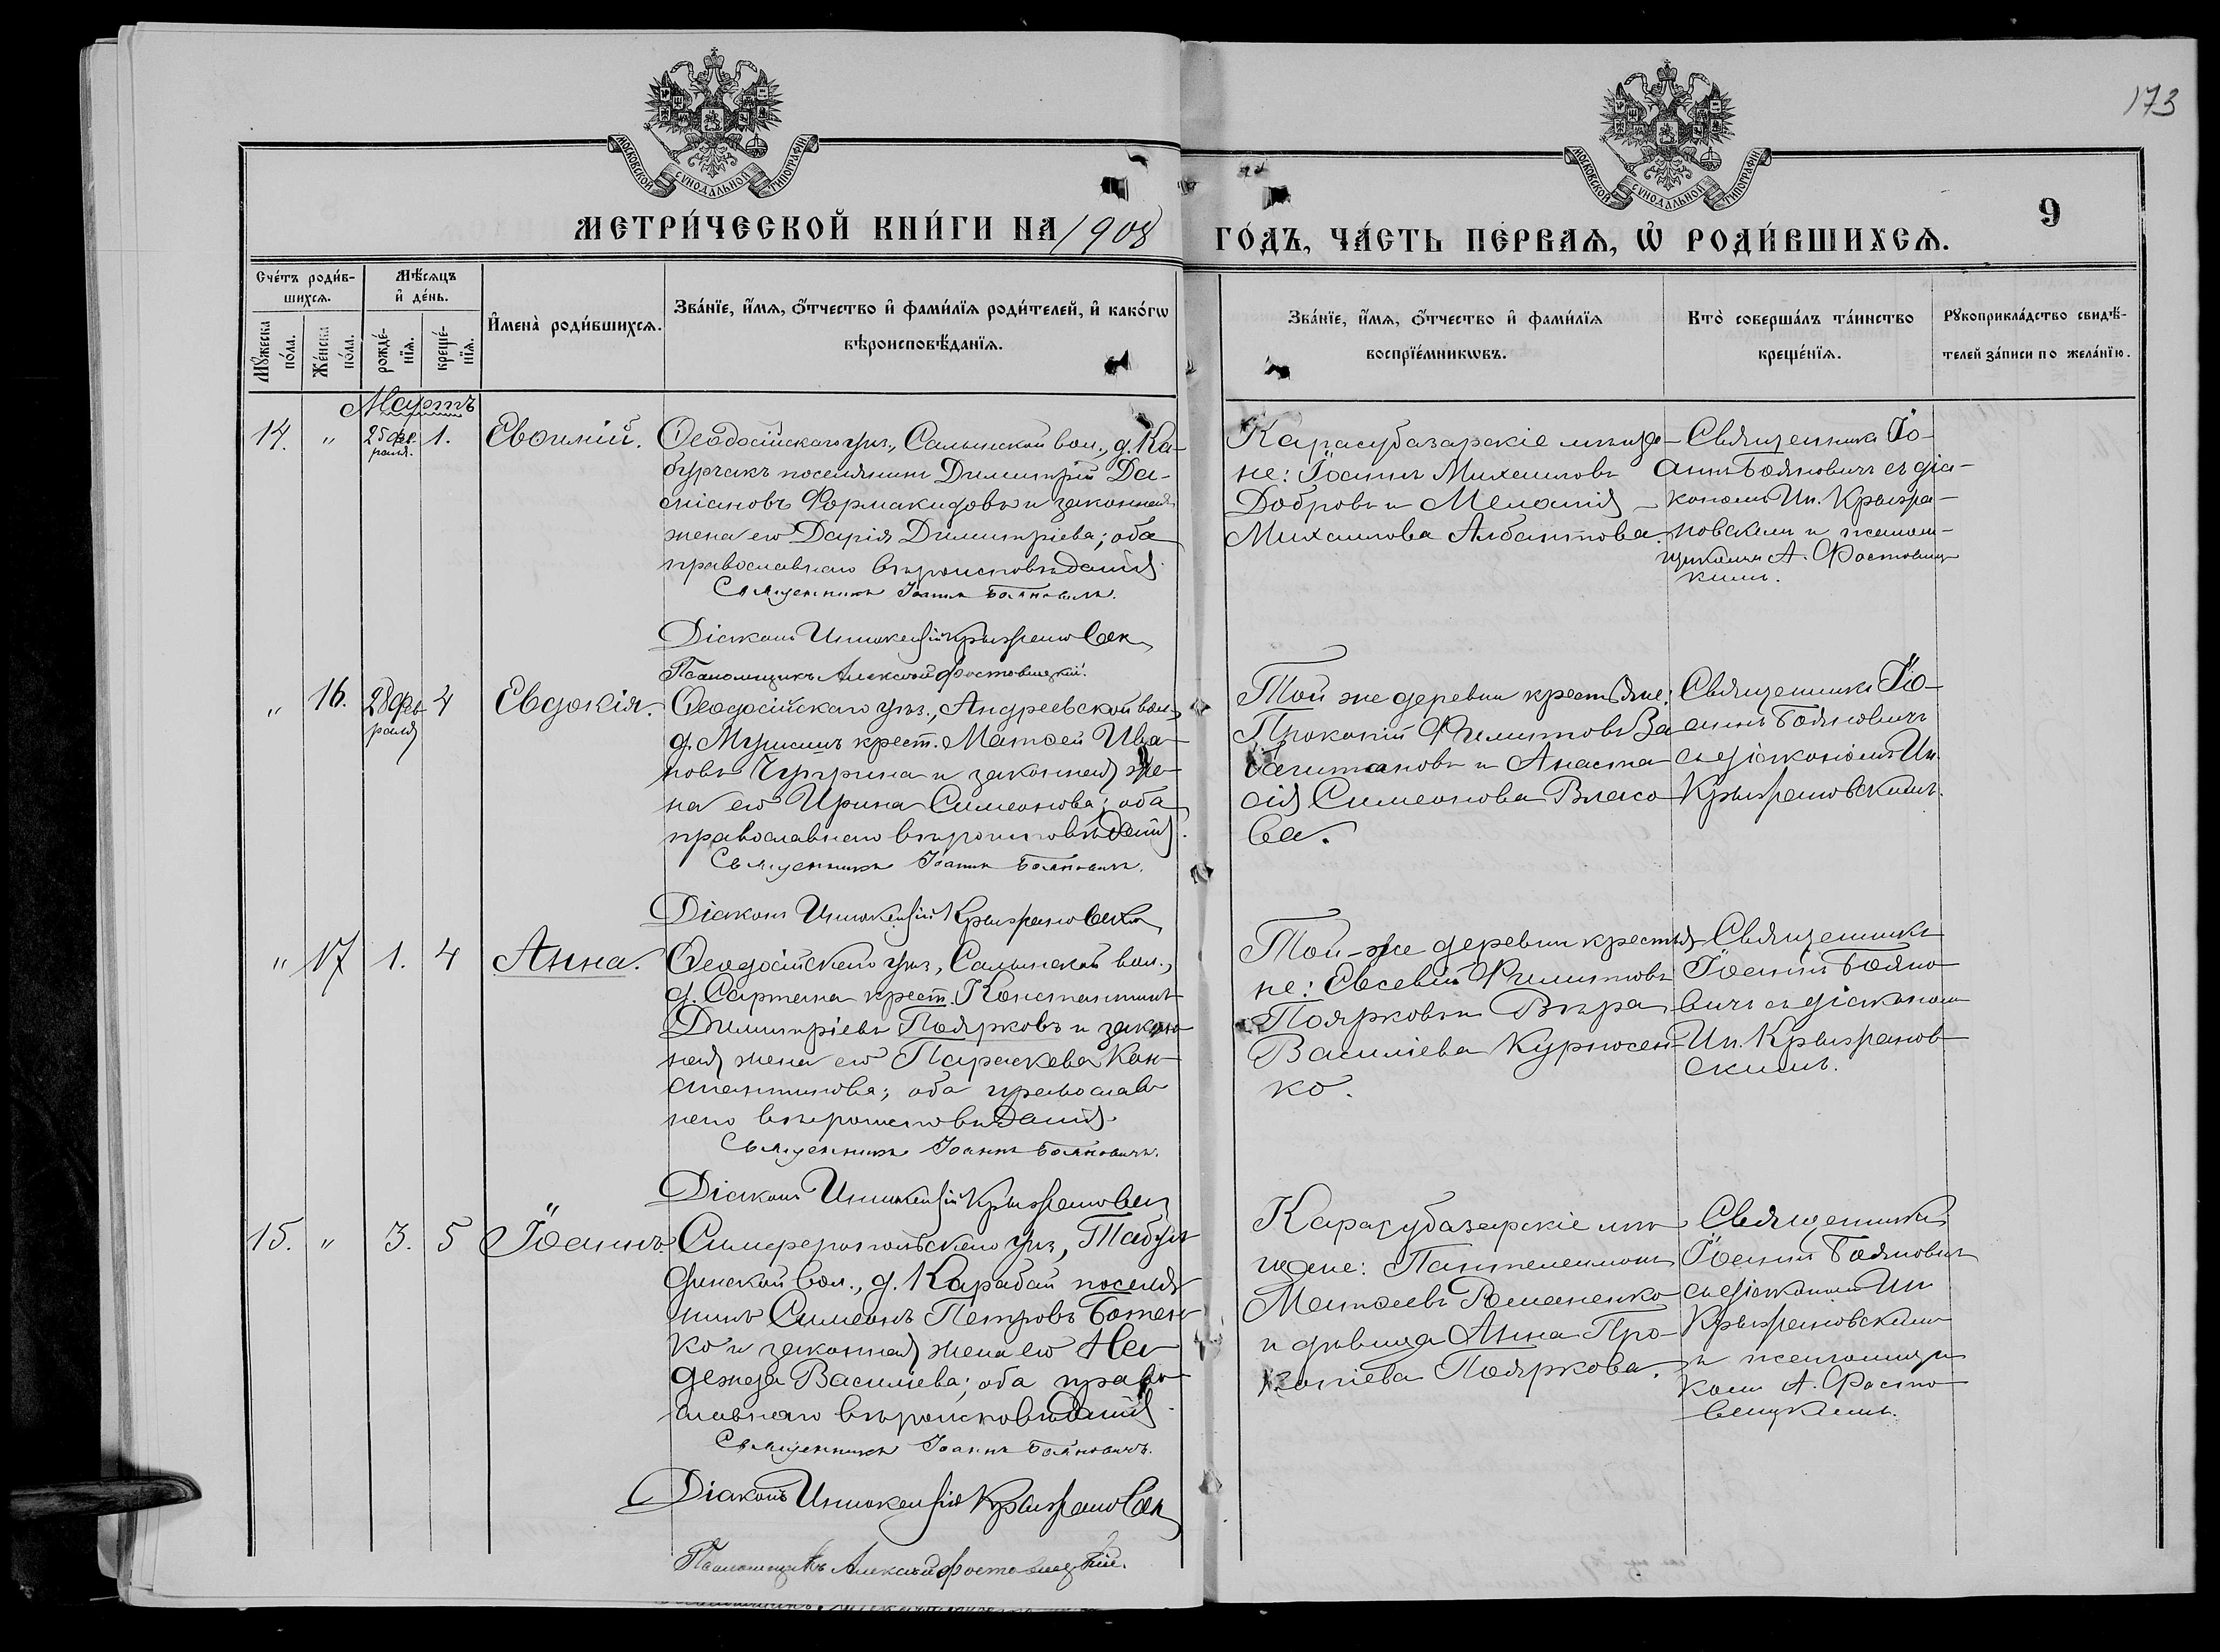 173
МОСКОВСКОЙ СѴНОДАЛЬНОЙ ТИПОГРАФІИ.
МОСКОВСКОЙ СѴНОДАЛЬНОЙ ТИПОГРАФІИ.
9
МЕТРИ́ЧЕСКОЙ КНИ́ГИ НА 1908 ГО́ДЪ, ЧА́СТЬ ПЕ́РВАѦ, Ѡ҆ РОДИ́ВШИХСѦ.
Сче́тъ роди́в-
шихсѧ.
Мѣ́сѧцъ
и҆ де́нь.
Мꙋ́жеска
по́ла.
Же́нска
по́ла.
рожде́-
нїѧ.
креще́-
нїѧ.
И҆мена̀ роди́вшихсѧ.
Зва́нїе, и҆́мѧ, ѻ҆́тчество и҆ фами́лїѧ роди́телей, и҆ како́гѡ
вѣроисповѣ́данїѧ.
Зва́нїе, и҆́мѧ, ѻ҆́тчество и҆ фами́лїѧ
воспрїе́мникѡвъ.
Кто̀ соверша́лъ та́инство
креще́нїѧ.
Рꙋкоприкла́дство свидѣ́-
телей за́писи по жела́нїю.
Мартъ
14. " 25 фев-
раля. 1. Евѳимій.
Ѳеодосійскаго уѣз., Салынской вол., д. Ка-
бурчакъ поселянинъ Димитрій Да-
міановъ Фармакидовъ и законная
жена его Дарія Димитріева; оба
православнаго вѣроисповѣданія.
Священникъ Іоаннъ Бояновичъ.
Діаконъ Иннокентій
Псаломщикъ Алексѣй Фостовицкій.
Карасубазарскіе мѣща-
не: Іоаннъ Михаиловъ
Добровъ и Меланія
Михаилова Албантова.
Священникъ Іо-
аннъ Бояновичъ съ діа-
кономъ Ин.
и псалом-
щикомъ А. Фостовиц-
кимъ.
" 16. 28 фев-
раля 4 Евдокія.
Ѳеодосійскаго уѣз., Андреевской вол.,
д. крест. Матѳей Ива-
новъ Чуприна и законная же-
на его Ирина Симеонова; оба
православнаго вѣроисповѣданія.
Священникъ Іоаннъ Бояновичъ.
Діаконъ Иннокентій
Той же деревни крестьяне:
Прокопій Филиповъ
и Анаста-
сія Симеонова Власо-
ва.
Священникъ Іо-
аннъ Бояновичъ
съ діакономъ Ин.
" 17 1. 4 Анна.
Ѳеодосійскаго уѣз., Салынской вол.,
д. Сартана крест. Константинъ
Димитріевъ Поярковъ и закон-
ная жена его Параскева Кон-
стантинова; оба православ-
наго вѣроисповѣданія.
Священникъ Іоаннъ Бояновичъ.
Діаконъ Иннокентій
Той-же деревни крестья-
не: Евсевій Филиповъ
Поярковъ и Вѣра
Василіева Курносен-
ко.
Священникъ
Іоаннъ Бояно-
вичъ съ діакономъ
Ин.
15. " 3. 5 Іоаннъ.
Симферопольскаго уѣз., Табул-
динской вол., д. Карабай поселя-
нинъ Симеонъ Петровъ Ботен-
ко и законная жена его На-
дежда Василіева; оба право-
славнаго вѣроисповѣданія.
Священникъ Іоаннъ Бояновичъ.
Діаконъ Иннокентій
Псаломщикъ Алексѣй Фостовицкій.
Карасубазарскіе мѣ-
щане: Пантелеимонъ
Матѳеевъ Романенко
и дѣвица Анна Про-
копіева Пояркова.
Священникъ
Іоаннъ Бояновичъ
съ діакономъ Ин.
и псаломщи-
комъ А. Фосто-
вицкимъ.